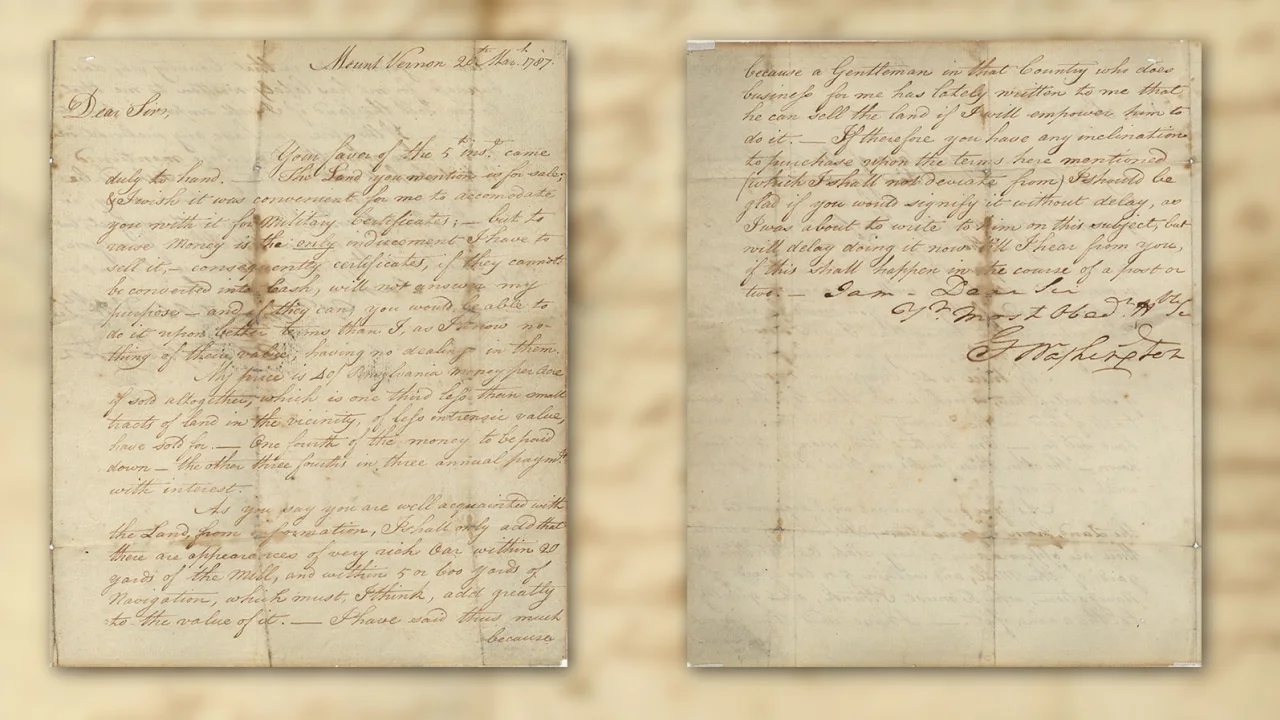 Mount Vernon 20th Mar. 1787.
Dear Sir,
Your favor of the 5th inst. came
duly to hand. — The Land you mention is for sale;
& I wish it was convenient for me to accomodate
you with it for Military certificates; — but to
raise money is the only inducement I have to
sell it, — consequently certificates, if they cannot
be converted into Cash, will not answer my
purposes — and if they can, you would be able to
do it upon better terms than I, as I know no-
thing of their value, having no dealings in them.
My price is 40/ Pensylvania money per Acre
if sold altogether, which is one third less than small
tracts of land in the vicinity, of less intrensic value,
have sold for. — One fourth of the money to be paid
down — the other three fourths in three annual paymts.
with interest.
As you say you are well acquainted with
the Land, from information, I shall only add that
there are appearances of very rich Oar within 20
yards of the Mill, and within 5 or 600 yards of
Navigation, which must, I think, add greatly
to the value of it. — I have said thus much
because
because a Gentleman in that Country who does
business for me has lately written to me that
he can sell the land if I will empower him to
do it. — If therefore you have any inclination
to purchase upon the terms here mentioned
(which I shall not deviate from) I should be
glad if you would signify it without delay, as
I was about to write to him on this subject, but
will delay doing it now till I hear from you,
if this shall happen in the course of a post or
two. — I am — Dear Sir
Yr. Most Obedt.
G Washington